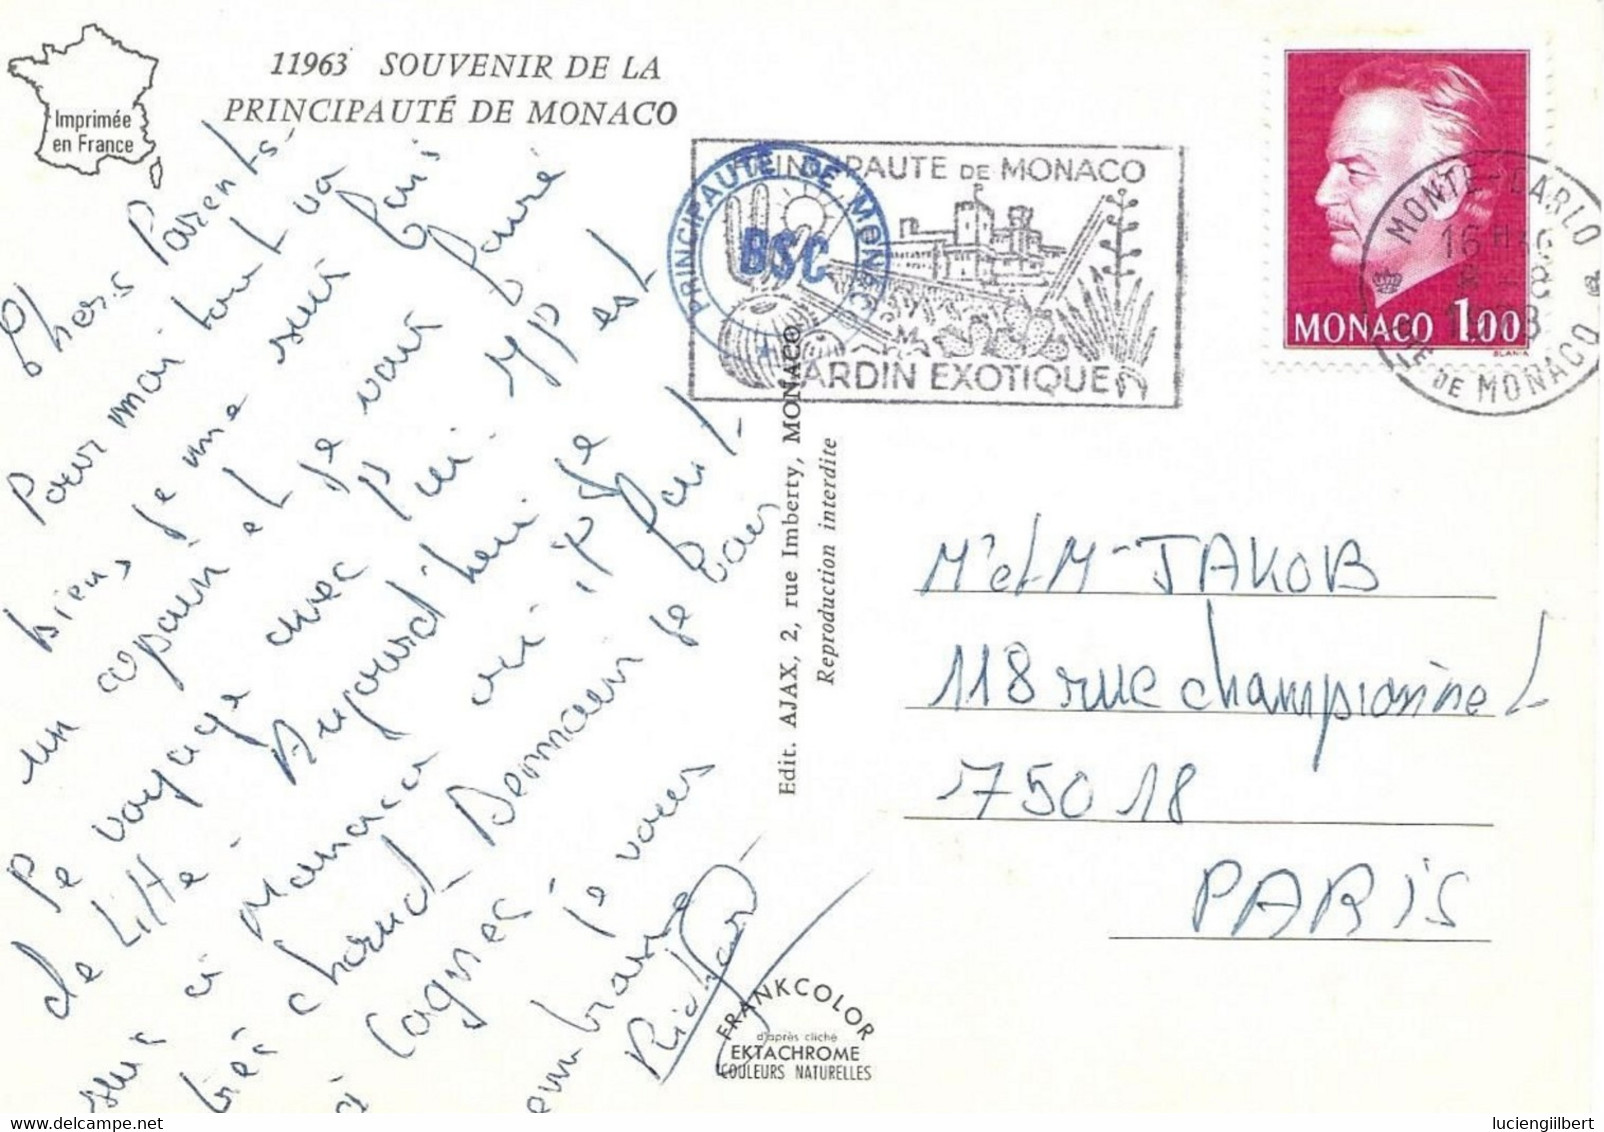 Imprimée
en France
11963 SOUVENIR DE LA
PRINCIPAUTÉ DE MONACO
Chers Parents-
Pour moi tout va
bien, je me suis fais
un copain et je vais faire
le voyage avec lui.
de
Aujourd'hui je
suis à Monaco où il fait
très chaud. Demain je vais
à Cagnes
je vous
embrasse
Richard
PRINCIPAUTE DE MONACO
JARDIN EXOTIQUE
PRINCIPAUTE DE MONACO
BSC
MONACO 1.00
MONTE-CARLO
16 H
DE MONACO
Edit. AJAX, 2, rue Imberty, MONACO
Reproduction interdite
Mr et M- JAKOB
118 rue championnet
75018
PARIS
FRANKCOLOR
d'après cliché
EKTACHROME
COULEURS NATURELLES
luciengilbert